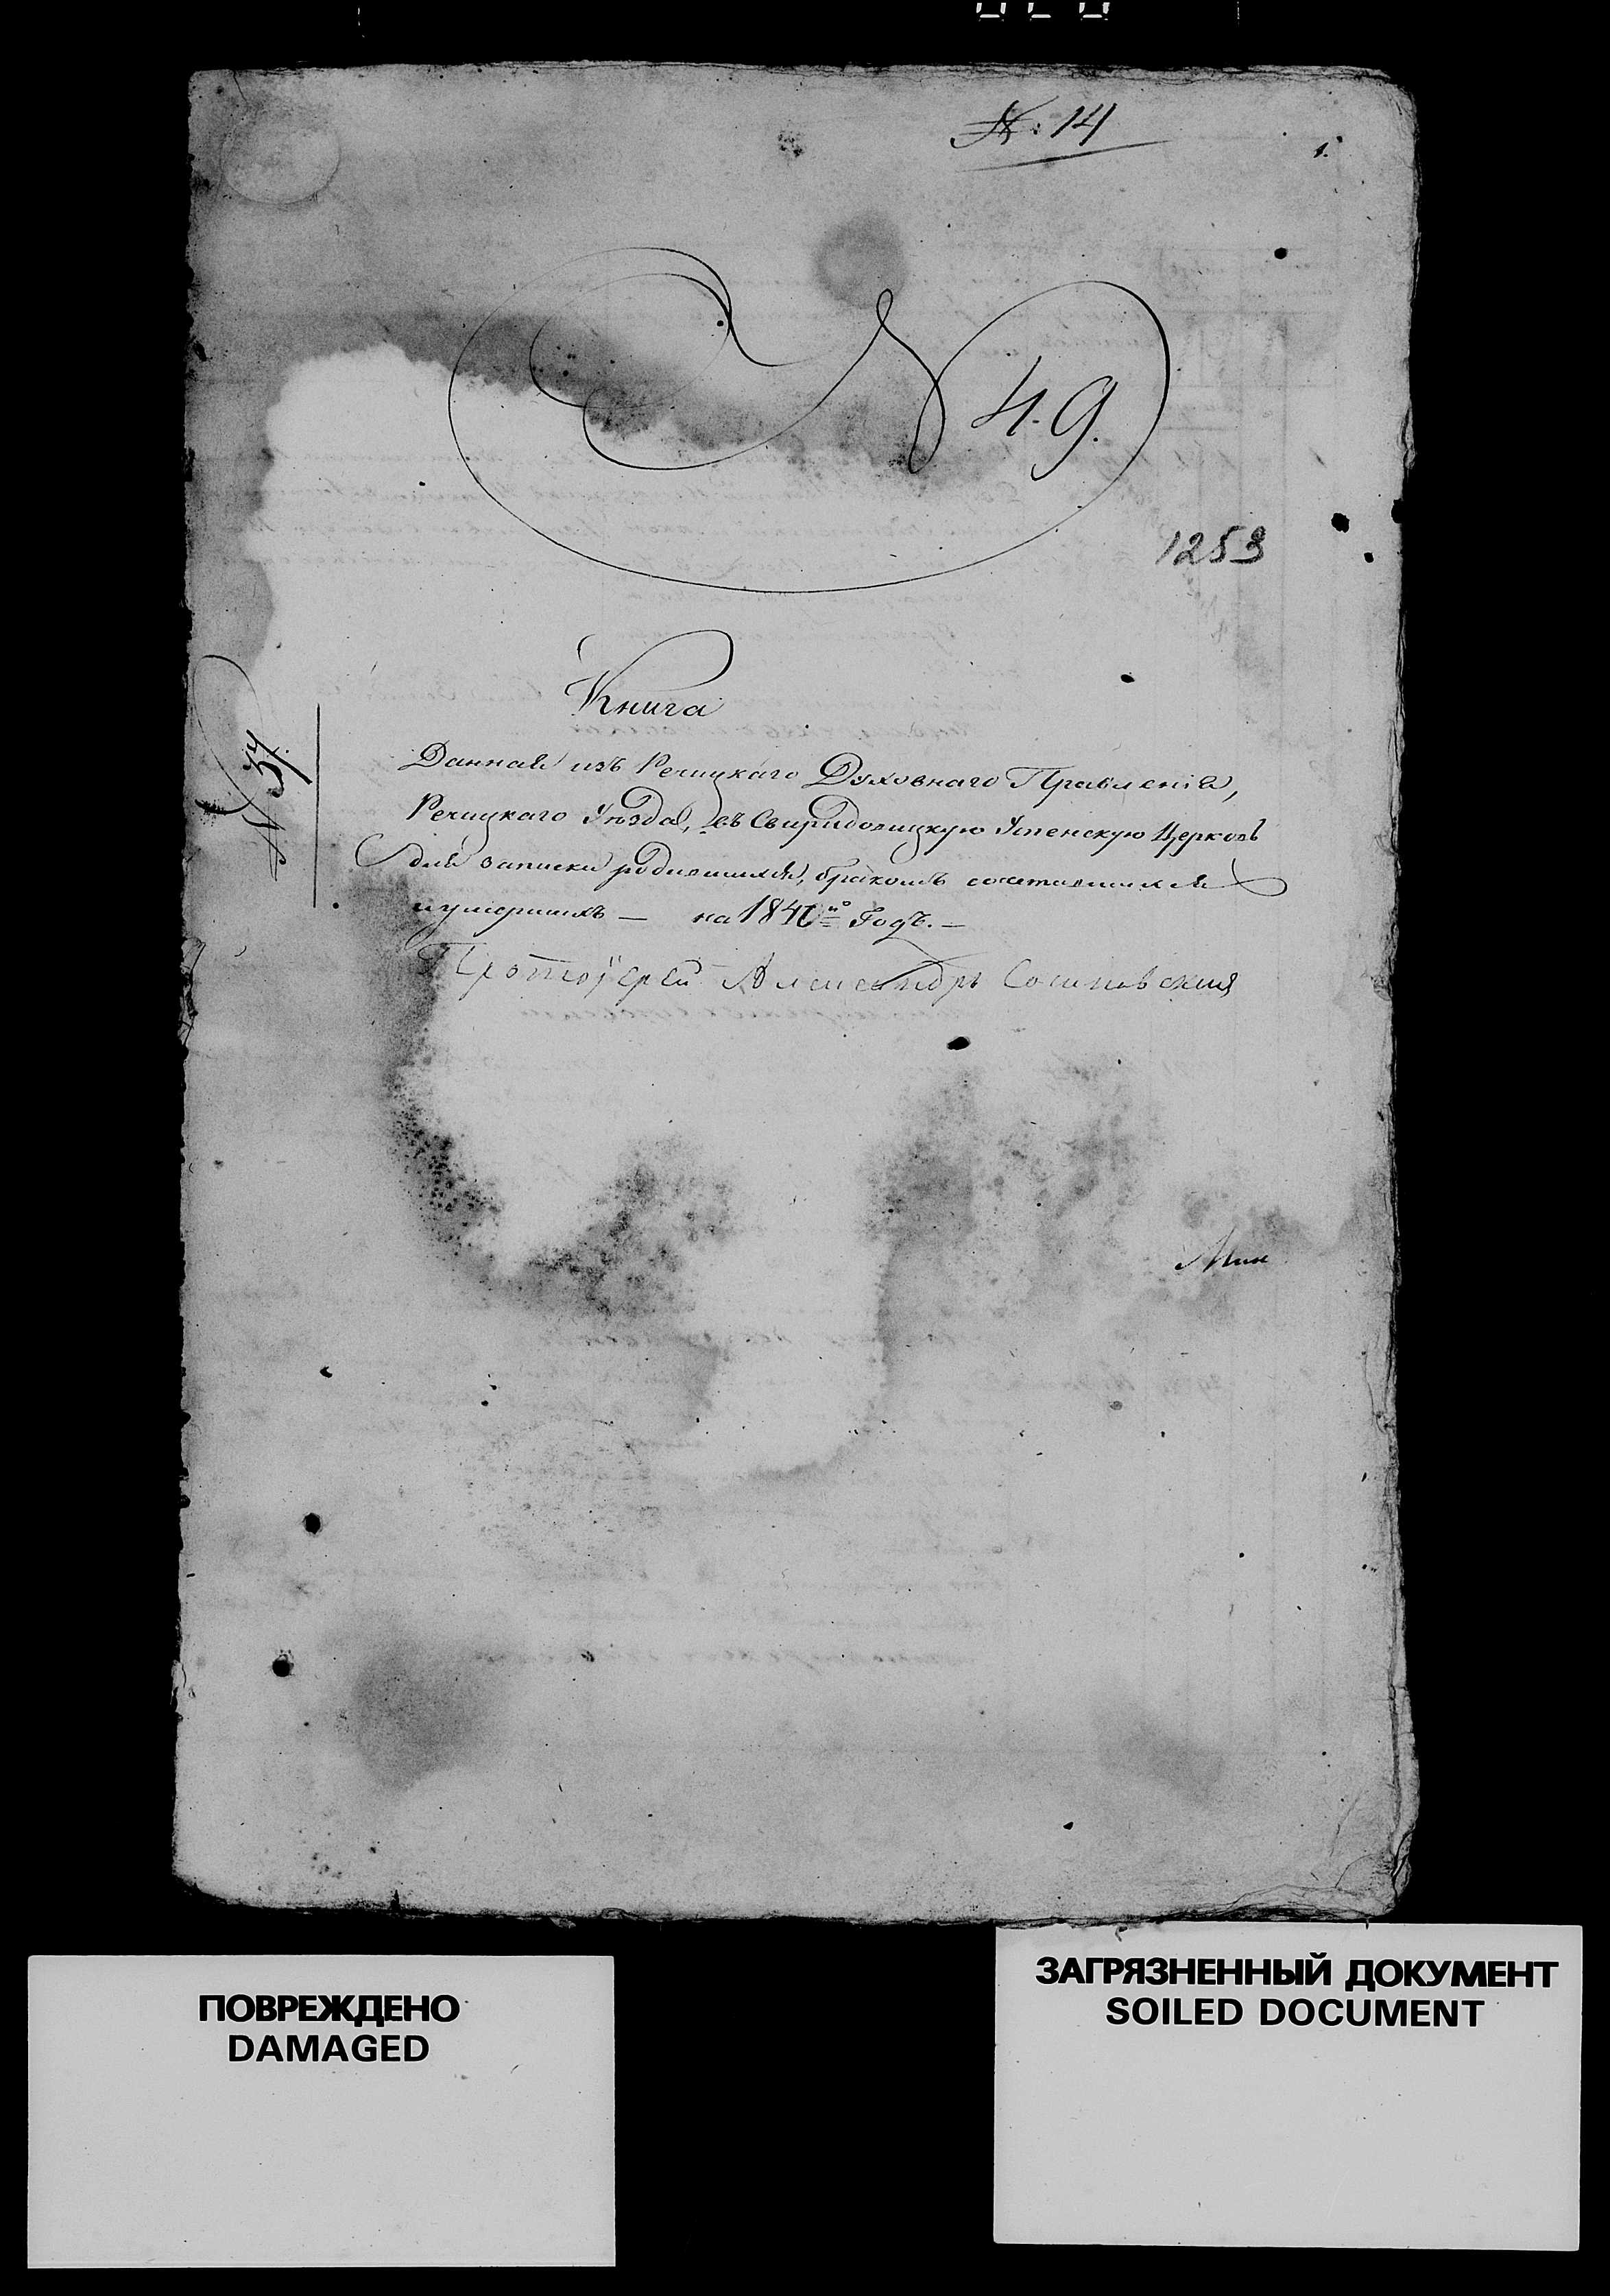 № 14
1.
№ 49.
1253
Книга
№ 37.
Данная изъ Речицкаго Духовнаго Правленія,
Речицкаго Уѣзда, въ Свиридовицкую Успенскую Церковь
для записки родившихся, бракомъ сочетавшихся
и умершихъ — на 1840й Годъ. —
Протоіерей Александръ
Мин
ПОВРЕЖДЕНО
DAMAGED
ЗАГРЯЗНЕННЫЙ ДОКУМЕНТ
SOILED DOCUMENT